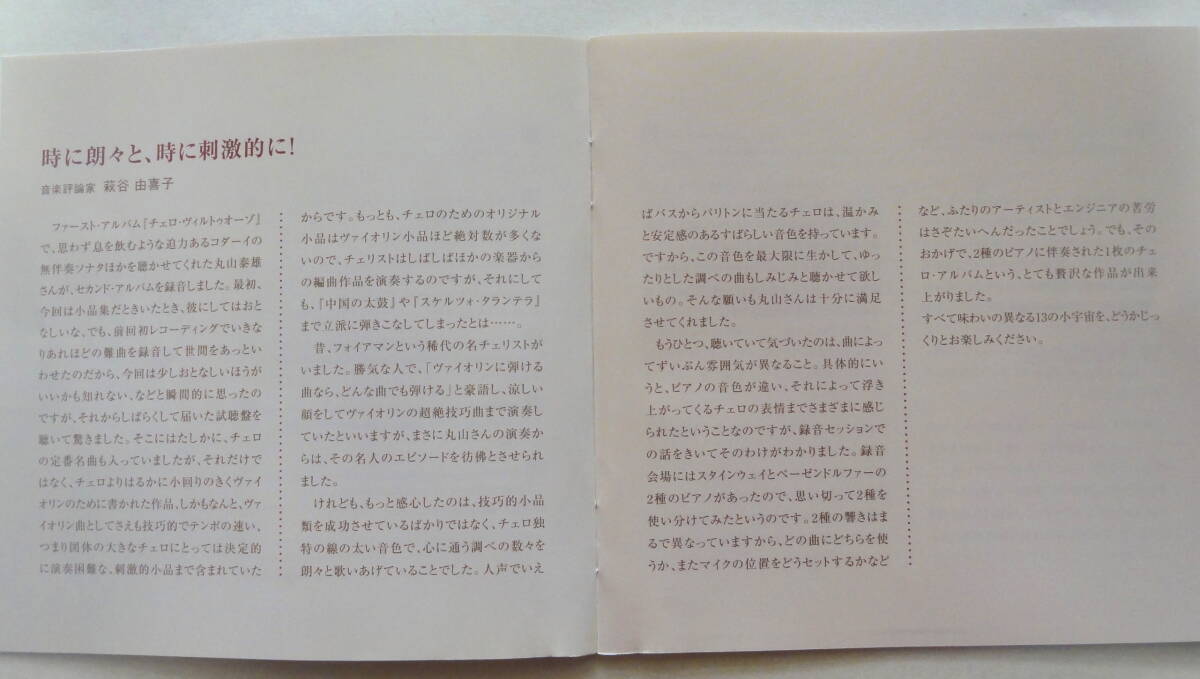 時に朗々と、時に刺激的に!
音楽評論家 萩谷 由喜子
ファースト・アルバム『チェロ・ヴィルトゥオーゾ』
で、思わず息を飲むような迫力あるコダーイの
無伴奏ソナタほかを聴かせてくれた丸山泰雄
さんが、セカンド・アルバムを録音しました。最初、
今回は小品集だときいたとき、彼にしてはおと
なしいな、でも、前回初レコーディングでいきな
りあれほどの難曲を録音して世間をあっとい
わせたのだから、今回は少しおとなしいほうが
いいかも知れない、などと瞬間的に思ったの
ですが、それからしばらくして届いた試聴盤を
聴いて驚きました。そこにはたしかに、チェロ
の定番名曲も入っていましたが、それだけで
はなく、チェロよりはるかに小回りのきくヴァイ
オリンのために書かれた作品、しかもなんと、ヴァ
イオリン曲としてさえも技巧的でテンポの速い、
つまり図体の大きなチェロにとっては決定的
に演奏困難な、刺激的小品まで含まれていた
からです。もっとも、チェロのためのオリジナル
小品はヴァイオリン小品ほど絶対数が多くな
いので、チェリストはしばしばほかの楽器から
の編曲作品を演奏するのですが、それにして
も、『中国の太鼓』や『スケルツォ・タランテラ』
まで立派に弾きこなしてしまったとは……。
昔、フォイアマンという稀代の名チェリストが
いました。勝気な人で、「ヴァイオリンに弾ける
曲なら、どんな曲でも弾ける」と豪語し、涼しい
顔をしてヴァイオリンの超絶技巧曲まで演奏し
ていたといいますが、まさに丸山さんの演奏か
らは、その名人のエピソードを彷彿とさせられ
ました。
けれども、もっと感心したのは、技巧的小品
類を成功させているばかりではなく、チェロ独
特の線の太い音色で、心に通う調べの数々を
朗々と歌いあげていることでした。人声でいえ
ばバスからバリトンに当たるチェロは、温かみ
と安定感のあるすばらしい音色を持っています。
ですから、この音色を最大限に生かして、ゆっ
たりとした調べの曲もしみじみと聴かせて欲し
いもの。そんな願いも丸山さんは十分に満足
させてくれました。
もうひとつ、聴いていて気づいたのは、曲によっ
てずいぶん雰囲気が異なること。具体的にい
うと、ピアノの音色が違い、それによって浮き
上がってくるチェロの表情までさまざまに感じ
られたということなのですが、録音セッションで
の話をきいてそのわけがわかりました。録音
会場にはスタインウェイとベーゼンドルファーの
2種のピアノがあったので、思い切って2種を
使い分けてみたというのです。2種の響きはま
るで異なっていますから、どの曲にどちらを使
うか、またマイクの位置をどうセットするかなど
など、ふたりのアーティストとエンジニアの苦労
はさぞたいへんだったことでしょう。でも、その
おかげで、2種のピアノに伴奏された1枚のチェ
ロ・アルバムという、とても贅沢な作品が出来
上がりました。
すべて味わいの異なる13の小宇宙を、どうかじっ
くりとお楽しみください。